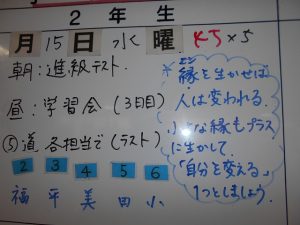 2年生
月15日水曜 欠席×5
朝:進級テスト.
昼:学習会(3日目)
⑤道 各担当で(ラスト)
2 3 4 5 6
福 平 美 田 小
縁を生かせば
人は変われる.
小さな縁もプラス
に生かして
「自分を変える」
1つとしましょう.